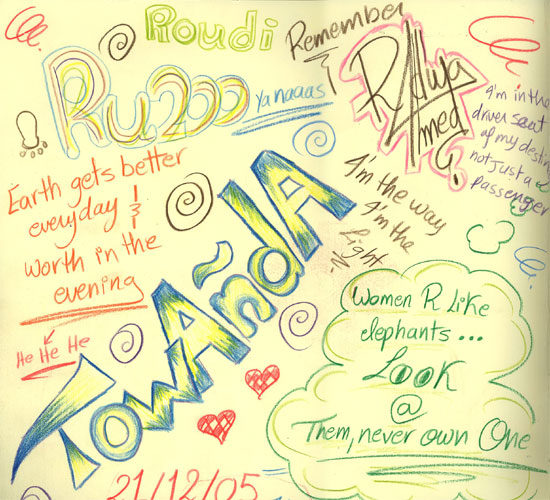 Roudi
Remember
Ru2oo
Ya naaas
Aliya
med
I'm in the
driver seat
of my destiny
not just a
passenger
Earth gets better
everyday &
worth in the
evening
He He He
I'm the way
I'm the
light
TowAñdA
Women R like
elephants...
Look
@
Them, never own One
21/12/05